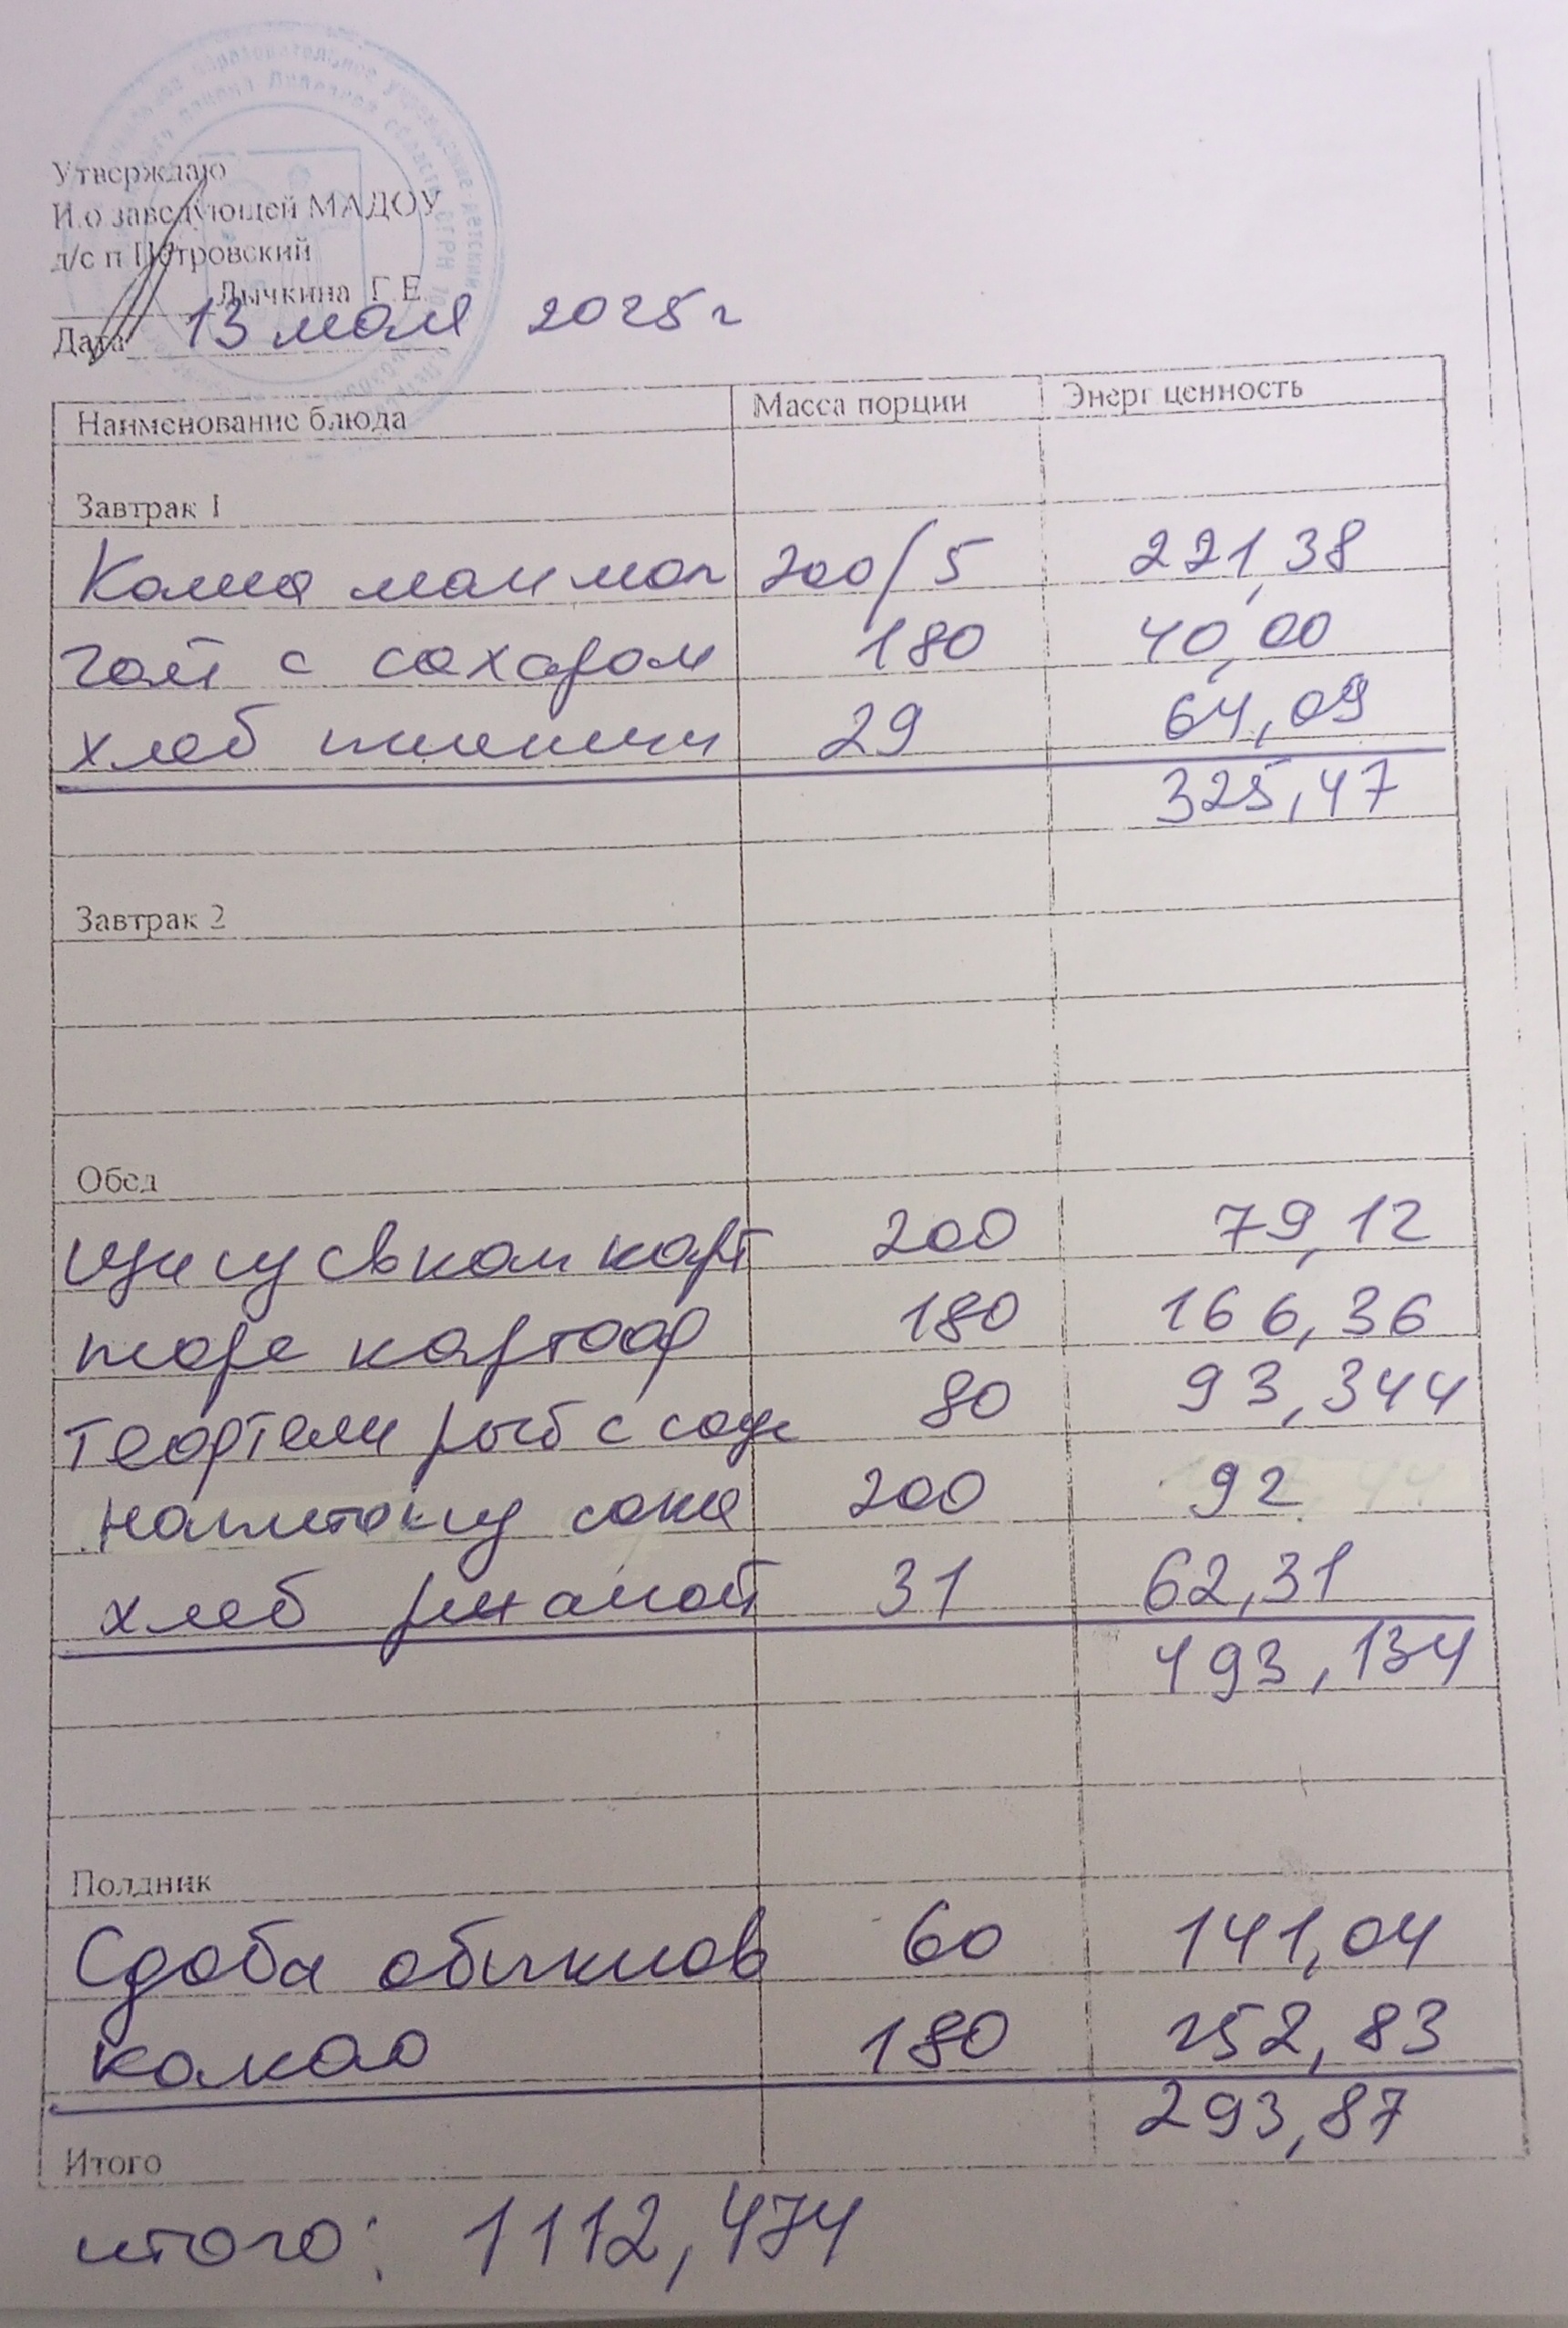 Утверждаю
И.о заведующей МАДОУ
д/с п Петровский
Лычкина Г.Е.
Дата 13 мая 2025г
Наименование блюда Масса порции Энерг ценность
Завтрак 1
Каша ман мол 200/5 221,38
Чай с сахаром 180 40,00
хлеб пшенич 29 64,09
325,47
Завтрак 2
Обед
Щи из св кап карт 200 79,12
пюре картоф 180 166,36
Тефтели рыб с соус 80 93,344
напиток из сока 200 92
хлеб ржаной 31 62,31
493,134
Полдник
Сдоба обыкнов 60 141,04
какао 180 152,83
293,87
Итого
итого: 1112,474